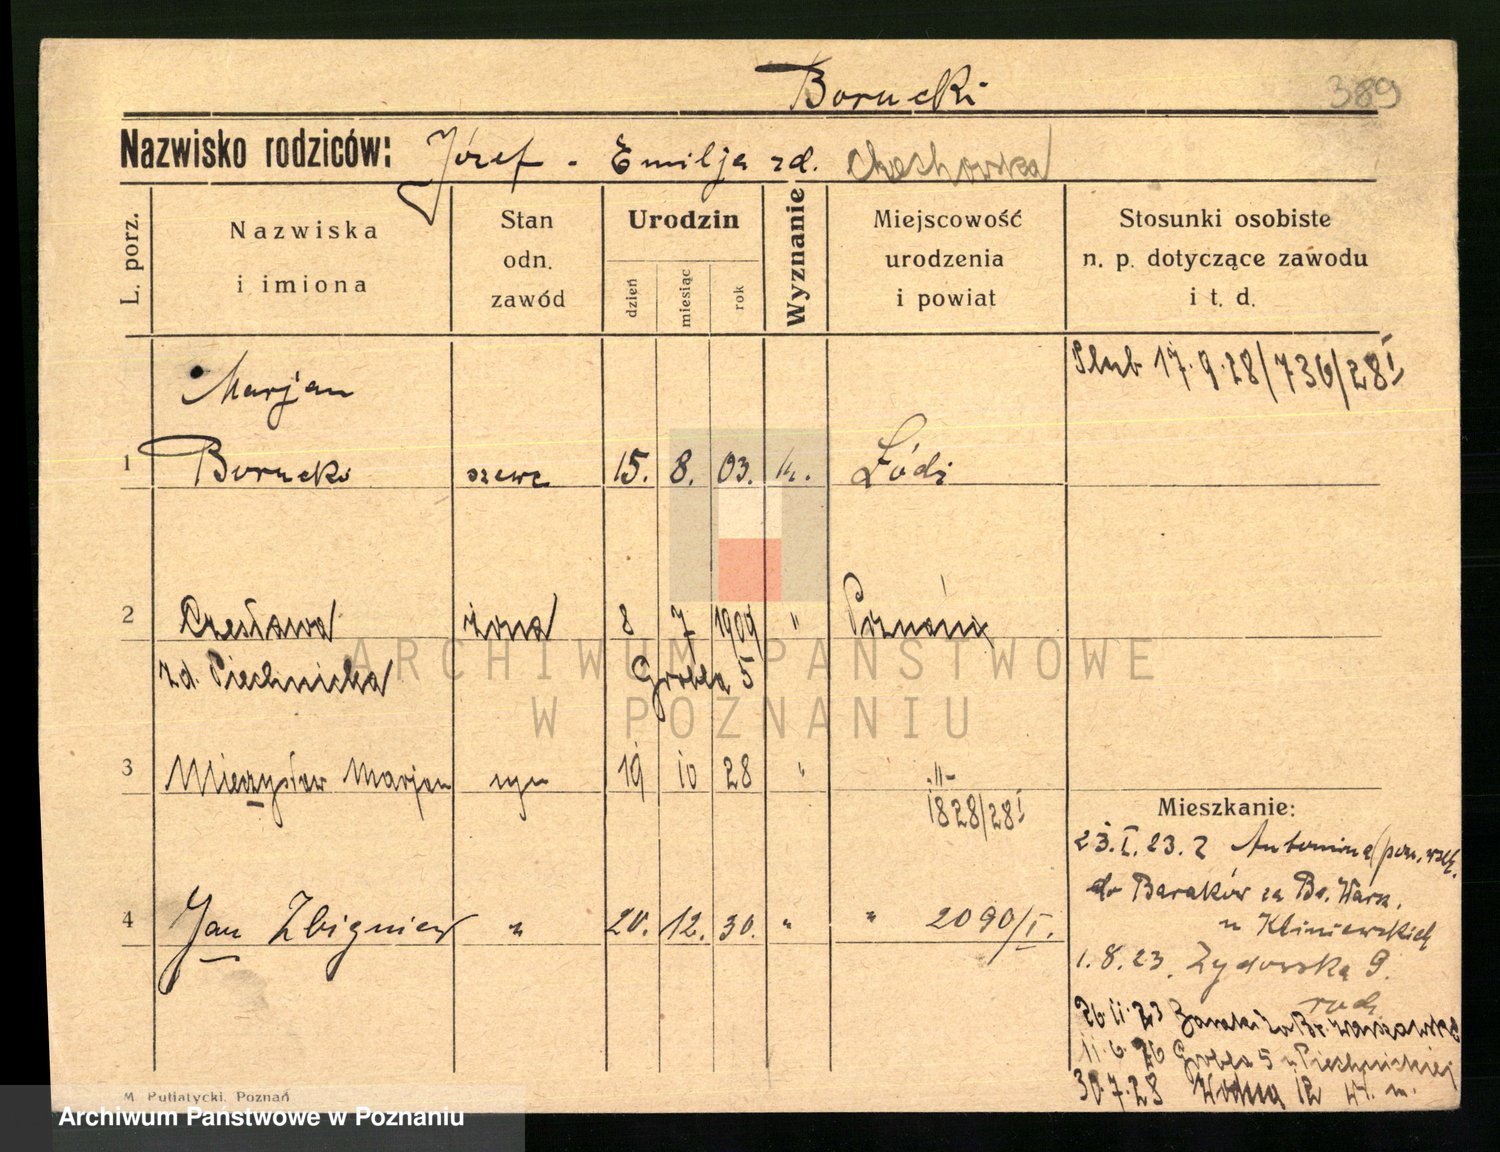 Borucki
389
Nazwisko rodziców: Józef - Emilja zd. Czechowska
L. porz.
Nazwiska i imiona
Stan odn. zawód
Urodzin
dzień
miesiąc
rok
Wyznanie
Miejscowość urodzenia i powiat
Stosunki osobiste n. p. dotyczące zawodu i t. d.
Ślub 17.9.28/736/28 I
Marjan
1 Borucki szewc 15. 8. 03. Łódź
2 Czesława żona 8 7 1909 " Poznań
zd. Piechnicka Grobla 5
3 Mieczysław Marjan syn 19 10 28 " -"-
1828/28 I
Mieszkanie:
23.I.23. z Antonina
do Baraków za Br. Warz.
u Kliniewskich
4 Jan Zbigniew " 20. 12. 30. " " 2090/I.
1.8.23. Żydowska 9.
rodz.
26 11 23 Baraki za Br. Warszawską
11.6.26 Grobla 5 u Piechnickiej
30.7.28 Wodna 12 m.
M. Putiatycki, Poznań
ARCHIWUM PAŃSTWOWE
W POZNANIU
Archiwum Państwowe w Poznaniu